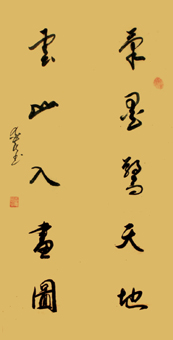 笔墨驚天地
雲山入畫圖